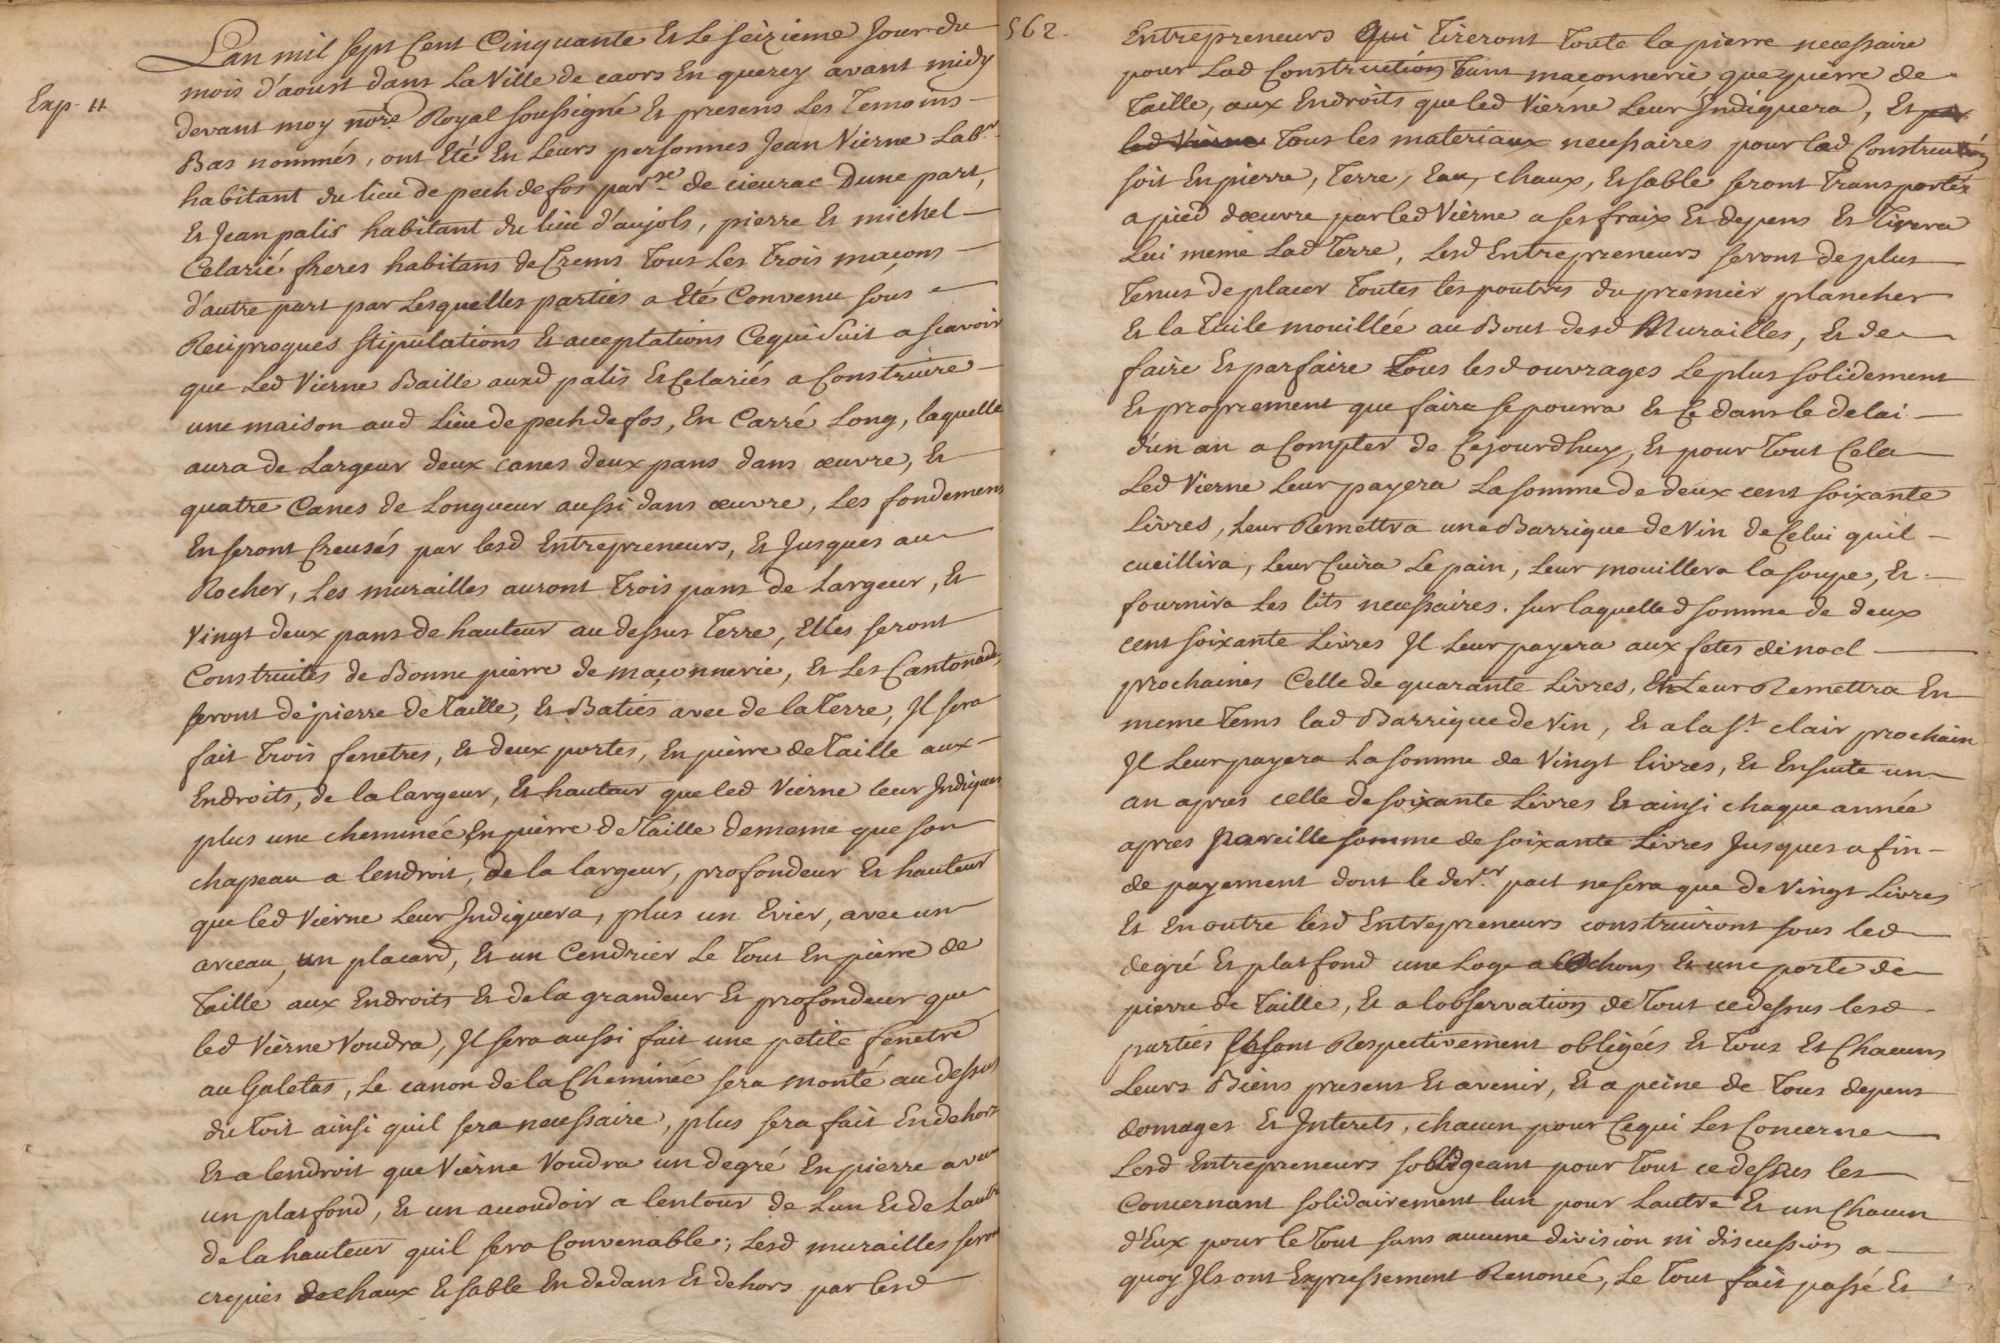 Exp. 11
Lan mil sept Cent Cinquante Et Le seizieme Jour du
mois d'aoust dans La Ville de caors En quercy avant midy
devant moy nore. Royal soussigné Et presens Les Temoins
Bas nommés, ont Eté En Leurs personnes Jean Vierne Labr.
habitant du lieu de pechdefos parsse. de cieurac Dune part,
Et Jean palis habitant du lieu d'aujols, pierre Et michel
Celarié freres habitans de Crems Tous Les Trois maçons
d'autre part par Lesquelles parties a Eté Convenu sous
Reciproques stipulations Et acceptations Cequi Suit a scavoir
que Led Vierne Baille auxd palis Et Celariés a Construire
une maison aud Lieu de pechdefos, En Carré Long, laquelle
aura de Largeur deux canes deux pans dans œuvre, Et
quatre Canes de Longueur aussi dans œuvre, Les fondemens
En seront Creusés par lesd Entrepreneurs, Et Jusques au
Rocher, Les murailles auront Trois pans de Largeur, Et
Vingt deux pans de hauteur au dessus Terre, Elles seront
Construites de Bonne pierre de maçonnerie, Et Les Cantonades
seront de pierre de Taille, Et Baties avec de la Terre, Il sera
fait Trois fenetres, Et deux portes, En pierre de Taille aux
Endroits, de la largeur, Et hauteur que led Vierne leur Indiquera
plus une cheminée En pierre de Taille demême que son
chapeau a lendroit, de la largeur, profondeur Et hauteur
que led Vierne Leur Indiquera, plus un Evier, avec un
arceau, un placard, Et un Cendrier Le Tout En pierre de
Taille aux Endroits Et de la grandeur Et profondeur que
led Vierne Voudra, Il sera aussi fait une petite fenetre
au Galetas, Le canon de la Cheminée sera monté au dessus
du Toit ainsi quil sera necessaire, plus sera fait En dehors
Et a lendroit que Vierne Voudra un degré En pierre avec
un platfond, Et un acoudoir a lentour de Lun Et de Lautre
de la hauteur quil sera Convenable; Lesd murailles seront
crepies de chaux Et sable En dedans Et dehors par lesd
562.
Entrepreneurs Qui Tireront Toute la pierre necessaire
pour Lad Construction Tant maçonnerie que pierre de
Taille, aux Endroits que led Vierne Leur Indiquera, Et par
led Vierne Tous les materiaux necessaires pour lad Construction
soit En pierre, Terre, Eau, chaux, Et sable seront Transportés
a pied d'œuvre par led Vierne a ses fraix Et depens Et Tirera
Lui meme Lad Terre, Lesd Entrepreneurs seront deplus
Tenus de placer Toutes les poutres du premier plancher
Et la Tuile mouillée au Bout desd Murailles, Et de
faire Et parfaire Tous lesd ouvrages Le plus solidement
Et proprement que faire se pourra Et Ce dans le delai
d'un an a Compter de Cejourdhuy, Et pour Tout Cela
Led Vierne Leur payera La somme de deux cent soixante
Livres, Leur Remettra une Barrique de Vin de Celui quil
cueillira, Leur Cuira Le pain, Leur mouillera la soupe, Et
fournira Les lits necessaires. sur laquelle d somme de deux
cent soixante Livres Il Leur payera aux fetes de noel
prochaines Celle de quarante Livres, Et Leur Remettra En
meme Tems lad Barrique de Vin, Et a la St. clair prochain
Il Leur payera La somme de Vingt livres, Et Ensuite un
an apres celle de soixante Livres Et ainsi chaque année
apres Pareille somme de soixante Livres Jusques a fin
de payement dont le derer. pact ne sera que de Vingt Livres
Et En outre lesd Entrepreneurs construiront sous led
degré Et platfond une Loge a Cochons Et une porte de
pierre de Taille, Et a lobservation de Tout cedessus lesd
parties se sont Respectivement obligées Et Tous Et Chacuns
Leurs Biens presens Et avenir, Et a peine de Tous depens
domages Et Interets, chacun pour Cequi Les Concerne
Lesd Entrepreneurs sobligeant pour Tout cedessus les
Concernant solidairement lun pour Lautre Et un Chacun
d'Eux pour le Tout sans aucune division ni discussion a
quoy Ils ont Expressement Renoncé, Le Tout fait passé Et